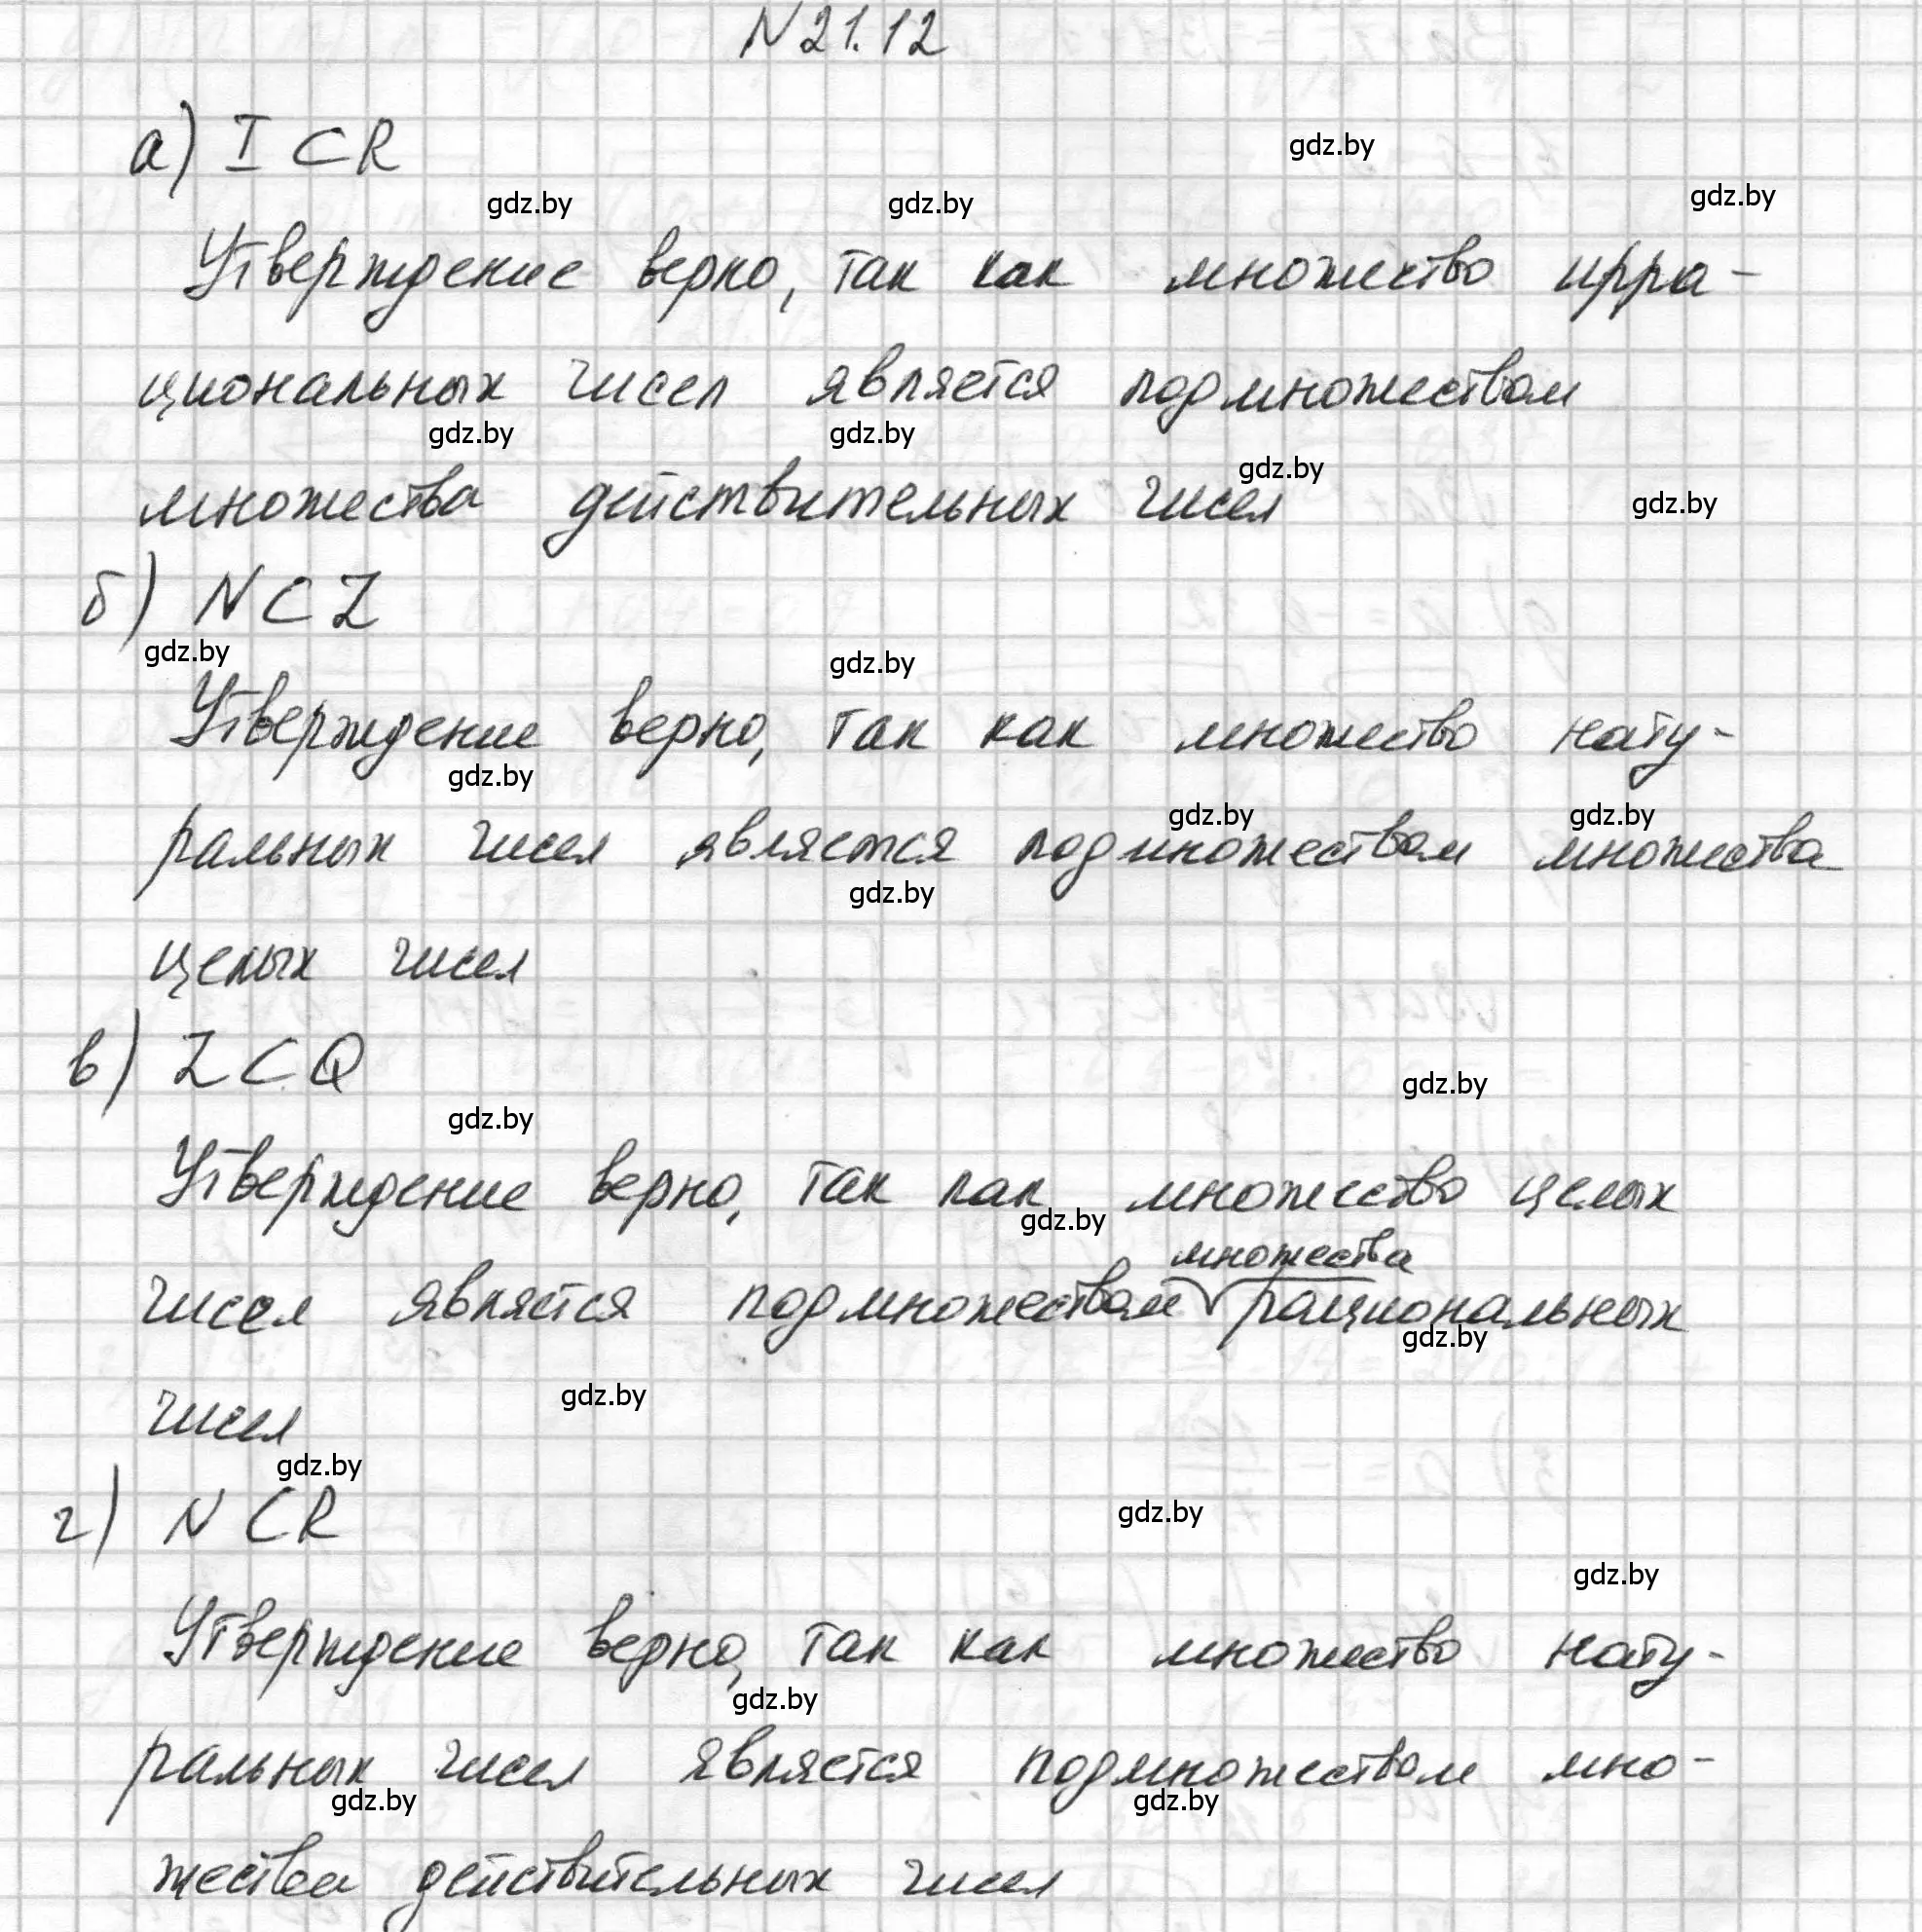 N 21.12
а) I ⊂ R
gdz.by
gdz.by gdz.by gdz.by
Утверждение верно, так как множество ирра-
циональных чисел является подмножеством
gdz.by gdz.by gdz.by
множества действительных чисел gdz.by
б) N ⊂ Z
gdz.by gdz.by
Утверждение верно, так как множество нату-
gdz.by gdz.by gdz.by
ральных чисел является подмножеством множества
gdz.by
целых чисел
в) Z ⊂ Q
gdz.by
gdz.by
Утверждение верно, так как множество целых
gdz.by
множества
чисел является подмножеством рациональных
gdz.by
чисел gdz.by
gdz.by
г) N ⊂ R
gdz.by
gdz.by
Утверждение верно, так как множество нату-
gdz.by
ральных чисел является подмножеством мно-
gdz.by gdz.by
жества действительных чисел